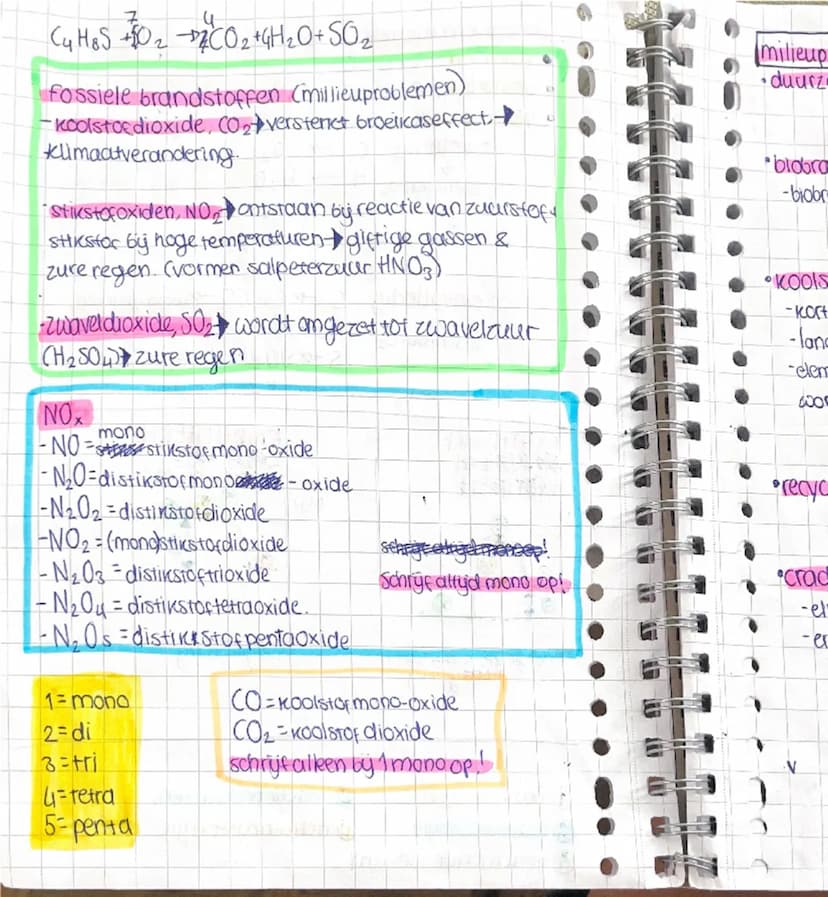 C4H8S + 7O2 → 4CO2 + 4H2O + SO2
fossiele brandstoffen (millieuproblemen)
- koolstofdioxide, CO2 → versterkt broeikaseffect →
klimaatverandering.
- stikstofoxiden, NO2 → ontstaan bij reactie van zuurstof +
stikstof bij hoge temperaturen → giftige gassen &
zure regen. (vormen salpeterzuur HNO3)
- zwaveldioxide, SO2 → wordt omgezet tot zwavelzuur
(H2SO4) → zure regen
NOx
mono
- NO = stikstofmono-oxide
- N2O = distikstofmono-oxide
- N2O2 = distikstofdioxide
- NO2 = (mono)stikstofdioxide
schrijf altijd mono op!
- N2O3 = distikstoftrioxide
schrijf altijd mono op!
- N2O4 = distikstoftetraoxide.
- N2O5 = distikstofpentaoxide
1 = mono
2 = di
3 = tri
4 = tetra
5 = penta
CO = koolstofmono-oxide
CO2 = koolstofdioxide
schrijf alleen bij 1 mono op!
milieup
• duurz
• biobra
- biobr
• kools
- kort
- lang
- elem
voor
• recyc
• crac
- el
- er